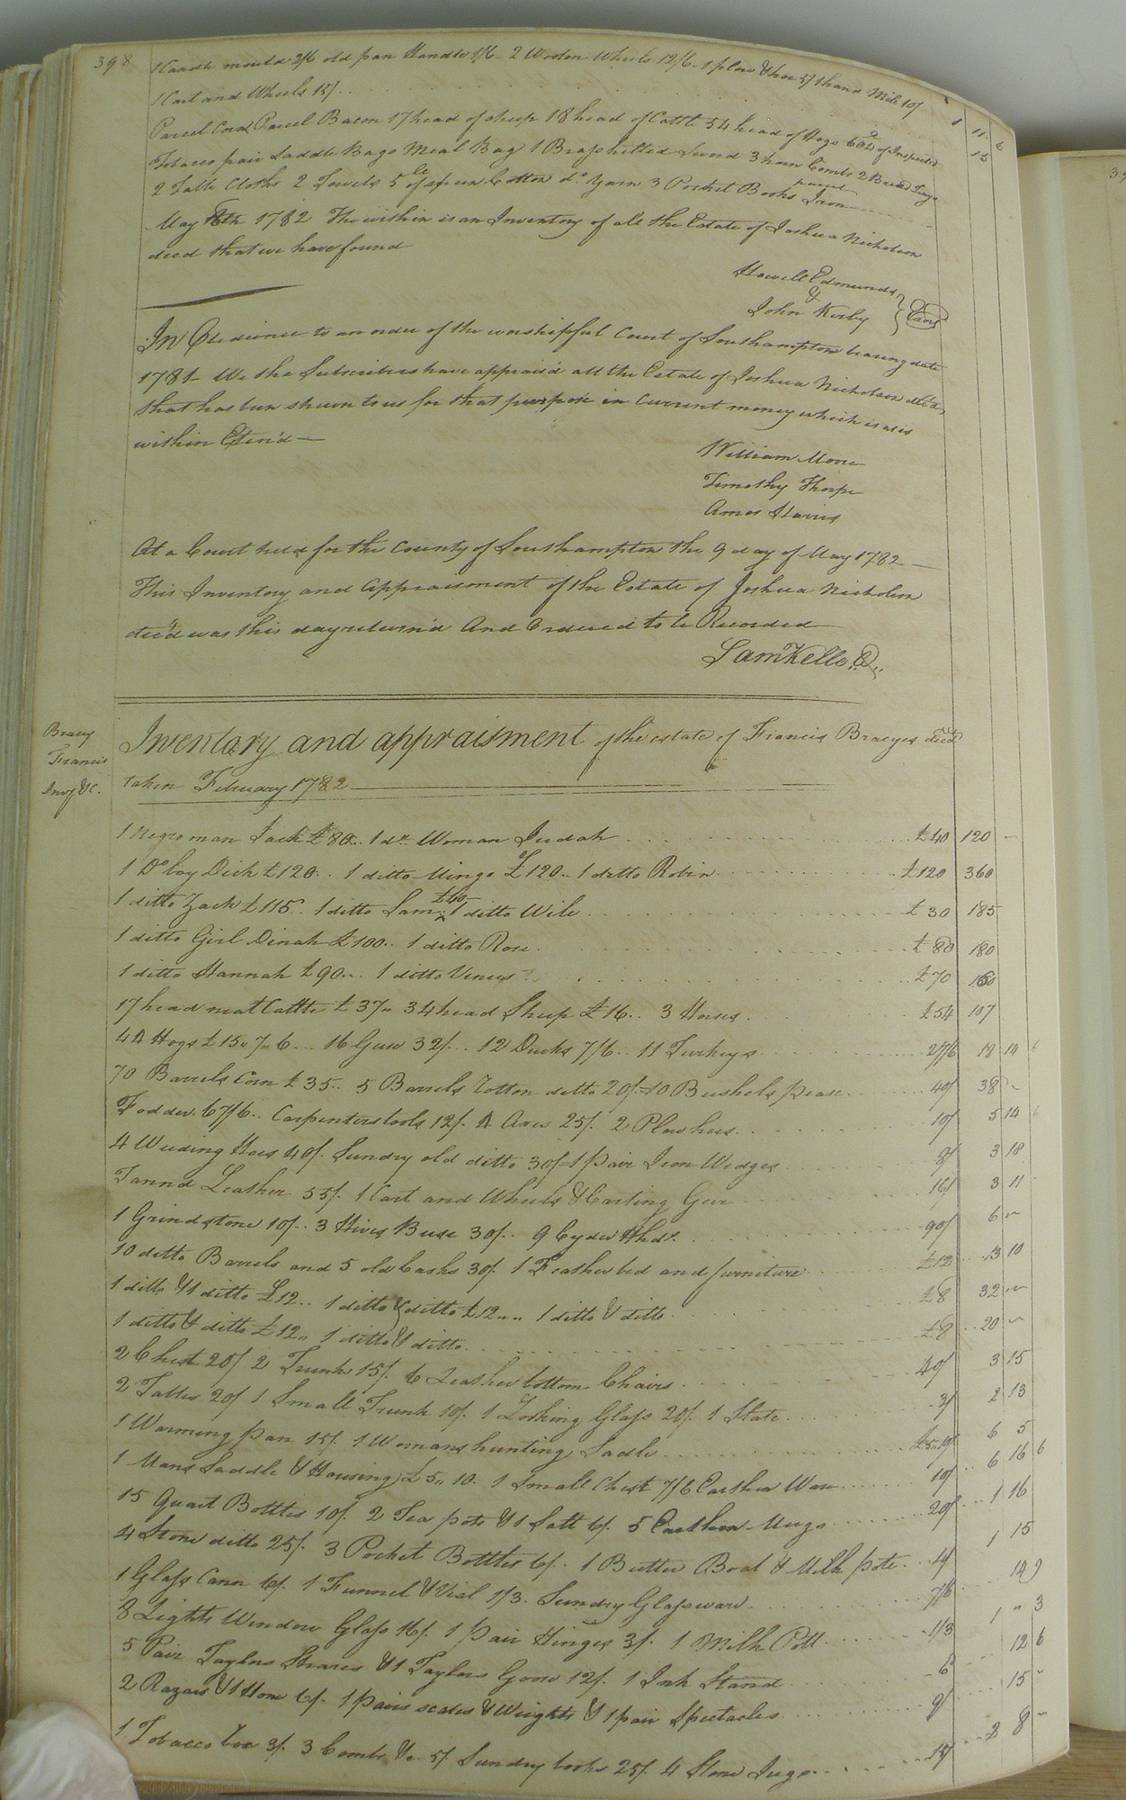 398
1 Candle mould 2/6 old pan Handle 1/6 2 Wooden Wheels 12/6 1 plow & hoe 5/ 1 hand Mill 10/ 1 11 6
1 Cart and Wheels 15/. 15
Parcel Corn Parcel Bacon 17 head of sheep 18 head of Cattle 54 head of Hogs of Inspected
Tobacco pair Saddle Bags Meal Bag 1 Brass hilted Sword 3 horn Combs 2
2 Table Cloths 2 Towels 5 lb of spun Cotton do. Yarn 3 Pocket Books parcel Iron
May 8th 1782 The within is an Inventory of all the Estate of Joshua Nicholson
decd that we have found
Howell Edmunds
&
John Kirby } Exors
In Obedience to an order of the worshipful Court of Southampton bearing date
1781 We the Subscribers have appraisd all the Estate of Joshua Nicholson decd
that has been shewn to us for that purpose in Current money which is as is
within Eten'd
William Moore
Timothy Thorpe
Amos Harris
At a Court held for the County of Southampton the 9 day of May 1782
This Inventory and Appraisment of the Estate of Joshua Nicholson
dec'd was this day return'd And Ordered to be Recorded
Sam Kello C
Bracey
Francis
Invy &c.
Inventory and appraisment of the estate of Francis Braceyes decd
taken February 1782
1 Negro man Jack £80.. 1 do. Woman Judah £40 120
1 Do boy Dick £120.. 1 ditto Mingo £120.. 1 ditto Robin £120 360
1 ditto Zack £115. 1 ditto Sam £40 1 ditto Wile £30 185
1 ditto Girl Dinah £100.. 1 ditto Rose £80 180
1 ditto Hannah £90.. 1 ditto Venus £70 160
17 head neat Cattle £37.. 34 head Sheep £16.. 3 Horses £54 107
42 Hogs £15.. 7.. 6 16 Geese 32/.. 12 Ducks 7/6.. 11 Turkeys 27/6 18 14 6
70 Barrels Corn £35.. 5 Barrels Rotton ditto 20/ 10 Bushels pease 40/ 38
Fodder 67/6.. Carpenters tools 12/. Axes 25/. 2 Plowhoes 10/ 5 14 6
4 Weeding Hoes 40/. Sundry old ditto 30/ 1 pair Iron Wedges 8/ 3 18
Tannd Leather 55/. 1 Cart and Wheels & Carting Geer 16/ 3 11
1 Grindstone 10/.. 3 Hives Bees 30/.. 9 Cyder Hhds. 90/ 6
10 ditto Barrels and 5 old Casks 30/. 1 Feather bed and furniture £12 13 10
1 ditto & 1 ditto £12.. 1 ditto & ditto £12.. 1 ditto & ditto £8 32
1 ditto & ditto £12.. 1 ditto & ditto £8 20
2 Chest 20/ 2 Trunks 15/. 6 Leather bottom Chairs 40/ 3 15
2 Tables 20/ 1 Small Trunk 10/. 1 Looking Glass 20/. 1 Slate 3/ 2 13
1 Warming pan 15/. 1 Womans hunting Sadle £5..10/ 6 5
1 Mans Saddle & Housing £5.. 10. 1 Small Chest 7/6 Earthen Ware 19/ 6 16 6
15 Quart Bottles 10/. 2 Tea pots & 1 Salt 6/. 5 Earthen Mugs 20/ 1 16
4 Stone ditto 25/. 3 Pocket Bottles 6/.. 1 Butter Boat & Milk pote 4/ 1 15
1 Glass Cann 6/. 1 Funnel & Vial 1/3. Sundry Glassware 7/6 14 9
8 Lights Window Glass 16/. 1 pair Hinges 3/. 1 Milk Pott 1/3 1 " 3
5 Pair Taylors Sheares & 1 Taylors Goose 12/. 1 Ink Stand 6 12 6
2 Razors & 1 Hone 6/. 1 pair scales & Weights & 1 pair Spectacles 9/ 15
1 Tobacco box 3/. 3 Combs &c. 5/ Sundry books 25/. 4 Stone Jugs 15/ 2 8